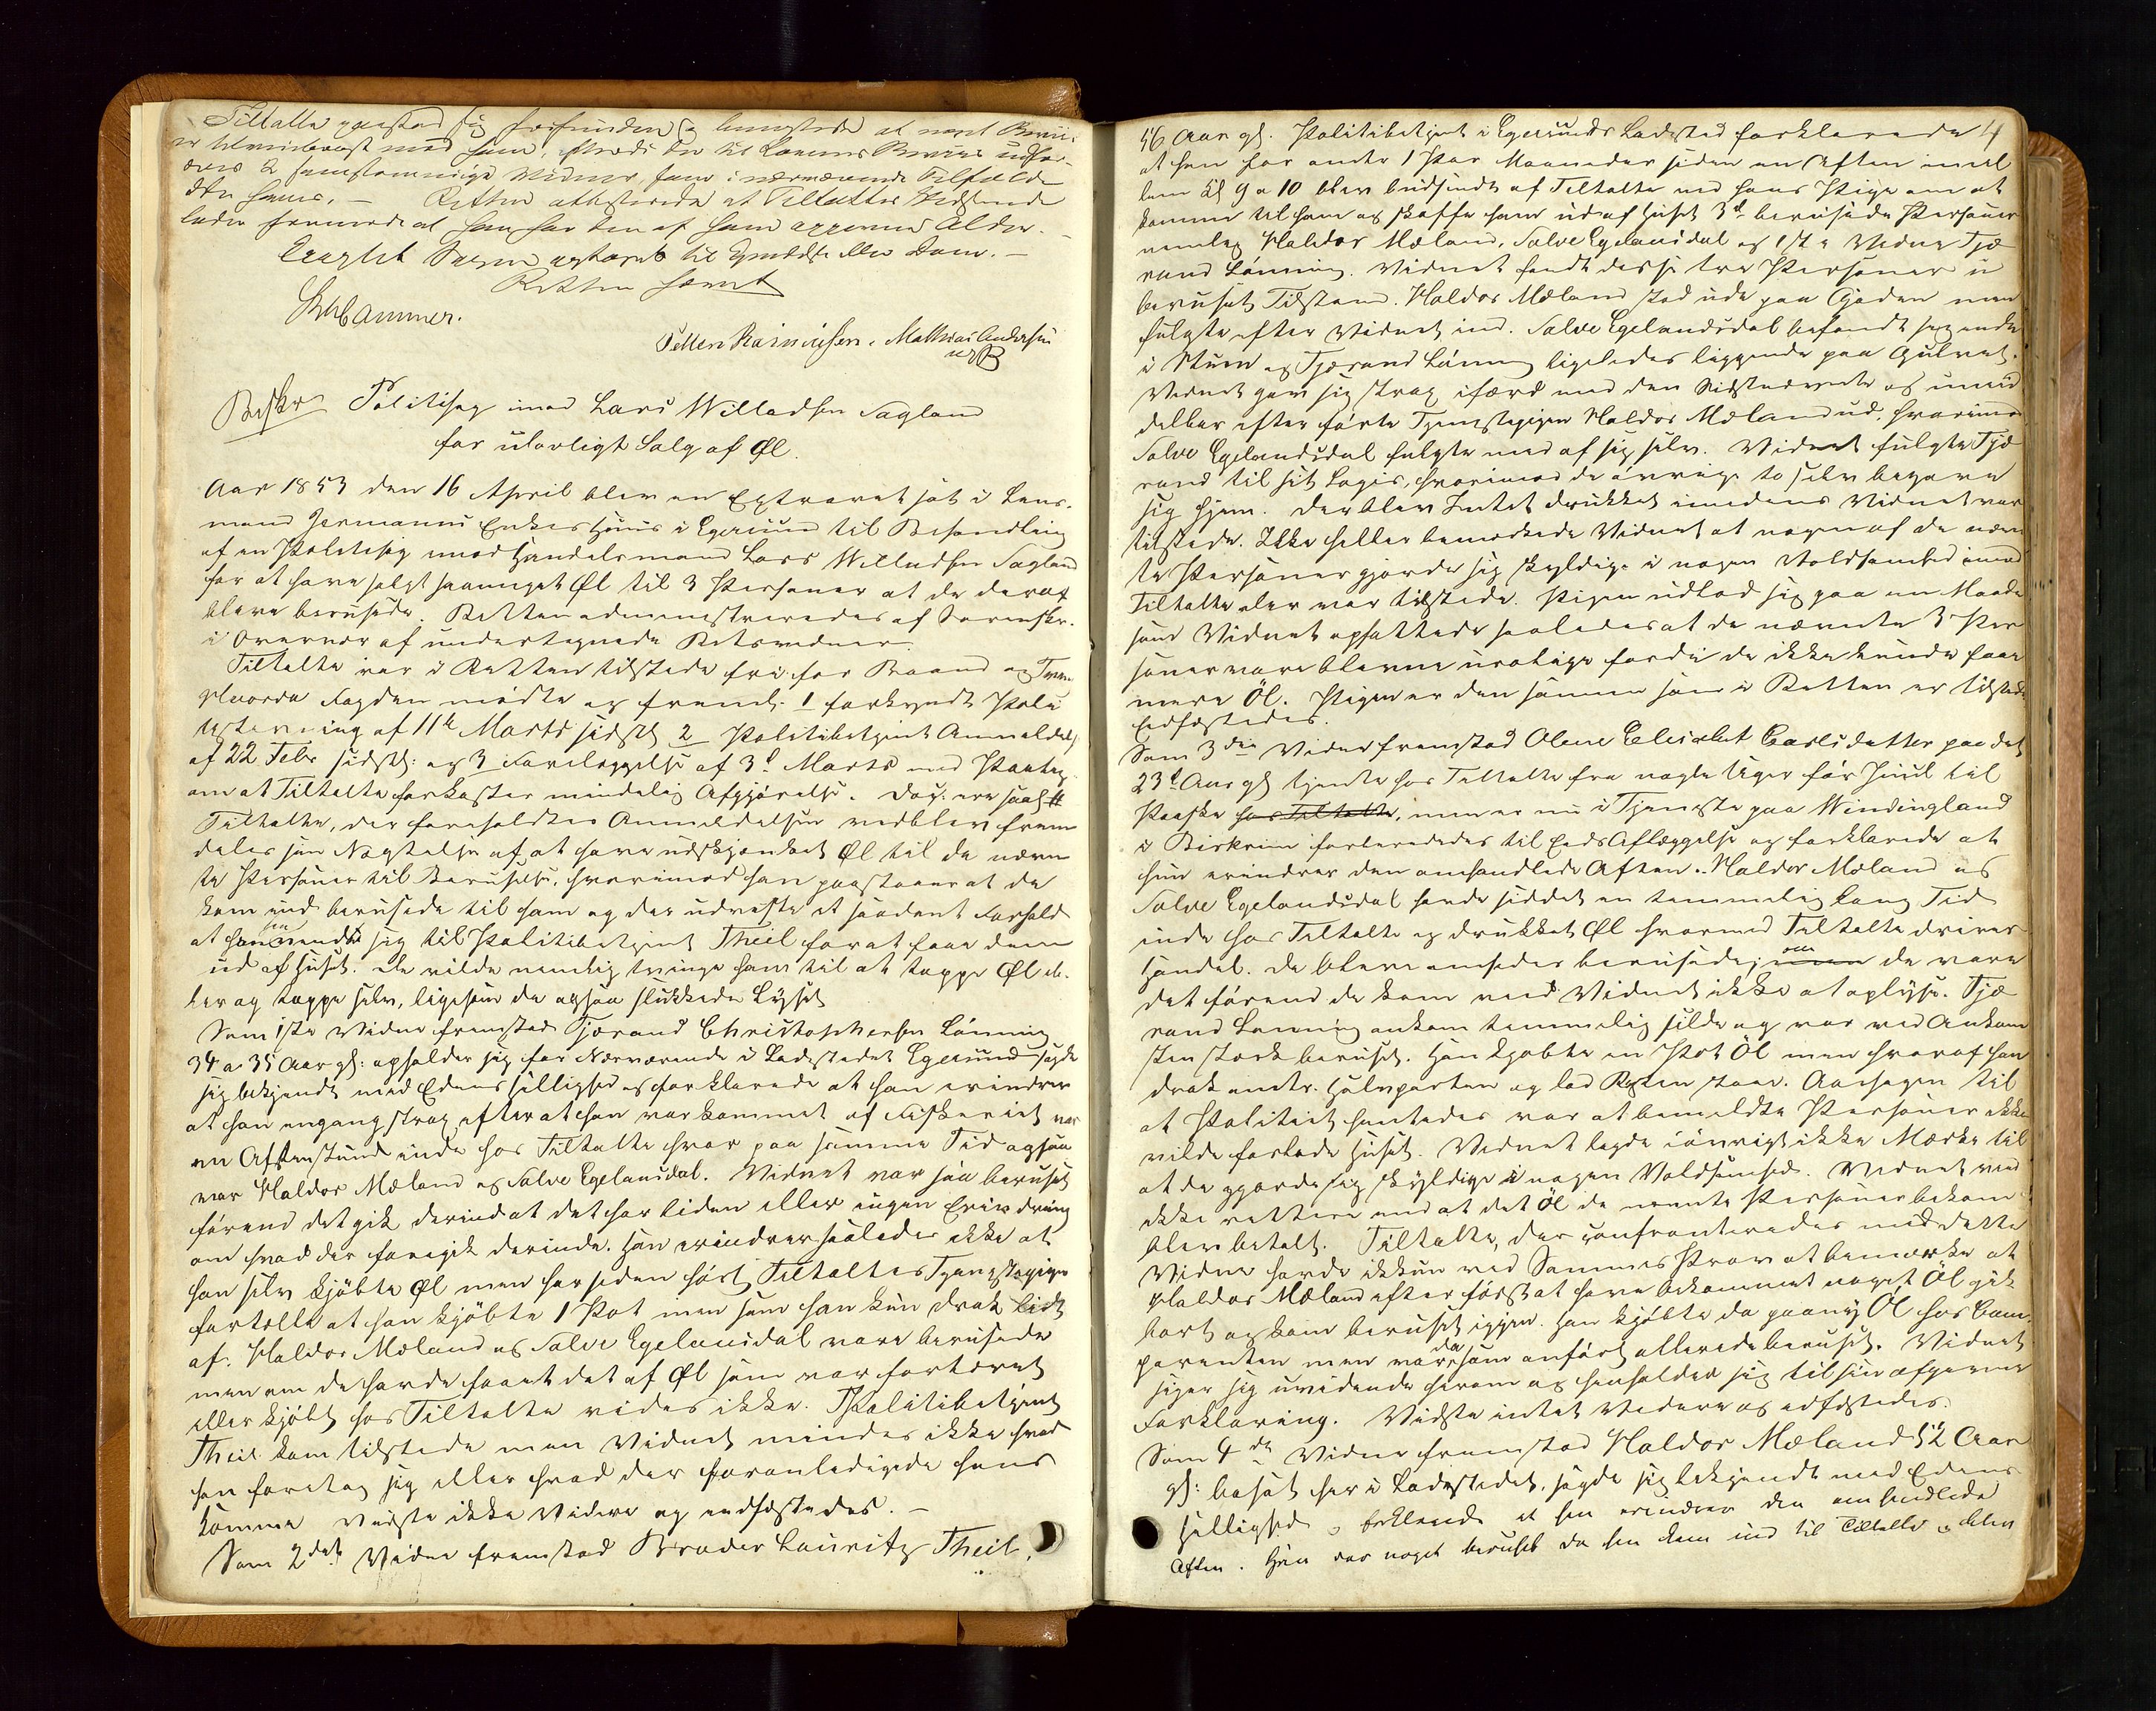 Tiltalte paastod sig frifunden og benegtede at noget Beviis
er tilveiebragt mod ham, efterdi der til Lovens Beviis udfor-
dres 2 samstemmige Vidner, som i nærværende Tilfælde
ikke haves. – Retten attesterede at Tiltaltes Udseende
lader formode at han har den af ham opgivne Alder. –
Eragtet Sagen optages til Kjendelse eller Dom. –
Retten hævet
Petter Rasmussen. Mathias Andersen
Beskr Politisag imod Lars Willadsen Sagland
for ulovligt Salg af Øl.
Aar 1853 den 16 April blev en Extraret sat i Lens-
mand Jermanns Enkes Huus i Egersund til Behandling
af en Politisag imod Handelsmand Lars Willadsen Sagland
for at have solgt saameget Øl til 3 Personer at de deraf
bleve berusede. Retten administreredes af Sorenskr.
i Overvær af undertegnede Retsvidner.
Tiltalte var i Retten tilstede fri for Baand og Tvang
Fogden mødte og freml. 1 forkyndt Poli
tistevning af 11te Marts sidstl. 2 Politibetjent Anmeldelse
af 22 Febr sidstl: og 3 Forelæggelse af 3d Marts med Paateg
om at Tiltalte forkaster mindelig Afgjørelse. Doc: ere saal #
Tiltalte, der foreholdtes Anmeldelsen vedblev frem
deles sin Nægtelse af at have udskjænket Øl til de nævn
te Personer til Beruselse, hvorimod han paastaaer at de
kom ind berusede til ham og der udviste et saadant Forhold
at han maatte vende sig til Politibetjent Theil for at faae dem
ud af Huset. De vilde nemlig tvinge ham til at tappe Øl el-
ler og tappe selv, ligesom de ogsaa slukkede Lyset
Som 1ste Vidne fremstod Tjærand Christophersen Lønning
34 a 35 Aar gl: opholder sig for Nærværende i Ladestedet Egersund sagde
sig bekjendt med Edens Hellighed og forklarede at han erindrer
at han engang strax efter at han var kommet af Fiskeriet var
en Aftenstund inde hos Tiltalte hvor paa samme Tid ogsaa
var Haldor Mæland og Salve Egelandsdal. Vidnet var saa beruset
førend det gik derind at det har liden eller ingen Erindring
om hvad der foregik derinde. Han erindrer saaledes ikke at
han selv kjøbte Øl men har siden hørt Tiltaltes Tjenestepige
fortælle at han kjøbte 1 Pot men som han kun drak lidt
af. Haldor Mæland og Salve Egelandsdal vare berusede
men om de havde faaet det af Øl som var fortæret
eller kjøbt hos Tiltalte vides ikke. Politibetjent
Theil kom tilstede men Vidnet mindes ikke hvad
han foretog sig eller hvad der foranledigede hans
Komme Vidste ikke Videre og eedfæstedes. –
Som 2det Vidne fremstod Broder Lauritz Theil,
56 Aar gl. Politibetjent i Egersunds Ladested forklarede 4
at han for omtr 1 Par Maaneder siden en Aften imel
lem Kl 9 a 10 blev budsendt af Tiltalte ved hans Pige om at
komme til ham og skaffe ham ud af Huset 3de berusede Personer
nemlig Haldor Mæland, Salve Egelandsdal og 1ste Vidne Tjæ
rand Lønning. Vidnet fandt disse tre Personer i
beruset Tilstand. Haldor Mæland stod ude paa Gaden men
fulgte efter Vidnet ind. Salve Egelandsdal befandt sig inde
i Stuen og Tjærand Lønning ligeledes liggende paa Gulvet.
Vidnet gav sig strax ifærd med den Sidstnævnte og umid
delbar efter førte Tjenestepigen Haldor Mæland ud, hvorimod
Salve Egelandsdal fulgte med af sig selv. Vidnet fulgte Tjæ
rand til sit Logis, hvorimod de øvrige to selv begave
sig hjem. Der blev Intet drukket imedens Vidnet var
tilstede. Ikke heller bemærkede Vidnet at nogen af de nævn
te Personer gjorde sig skyldige i nogen Voldsomhed imod
Tiltalte der var tilstede. Pigen udlod sig paa en Maade
som Vidnet opfattede saaledes at de nævnte 3 Per
soner vare blevne urolige fordi de ikke kunde faae
mere Öl. Pigen er den samme som i Retten er tilstede
Eedfæstedes.
Som 3die Vidne fremstod Olene Elisabet Carlsdatter paa det
23de Aar gl tjente hos Tiltalte fra nogle Uger før Juul til
Paaske hos Tiltalte, men er nu i Tjeneste paa Windingland
i Birkrem forberededes til Eeds Aflæggelse og forklarede at
hun erindrer den omhandlede Aften. Haldor Mæland og
Salve Egelandsdal havde siddet en temmelig lang Tid
inde hos Tiltalte og drukket Øl hvormed Tiltalte driver
Handel. De bleve omsider berusede; men om de vare
det førend de kom veed Vidnet ikke at oplyse. Tjæ
rand Lønning ankom temmelig silde og var ved Ankom
sten stærk beruset. Han kjøbte en Pot Öl men hvoraf han
drak omtr. Halvparten og lod Resten staae. Aarsagen til
at Politiet hentedes var at bemeldte Personer ikke
vilde forlade Huset. Vidnet lagde iøvrigt ikke Mærke til
at de gjorde sig skyldige i nogen Voldsomhed. Vidnet veed
ikke rettere end at det Öl de nævnte Personer bekom
blev betalt. Tiltalte, der confronteredes med dette
Vidne havde ikkun ved Sammes Prov at bemærke at
Haldor Mæland efter først at have bekommet noget Öl gik
bort og kom beruset igjen. Han kjøbte da paany Öl hos Com-
parenten men var da som anført allerede beruset. Vidnet
siger sig uvidende herom og henholder sig til sin afgivne
Forklaring. Vidste intet Videre og edfæstedes.
Som 4de Vidne fremstod Haldor Mæland 52 Aar
gl: bosat her i Ladestedet, sagde sig bekjendt med Edens
Hellighed og forklarede at han erindrer den omhandlede
Aften. Han var noget beruset da han kom ind til Tiltalte